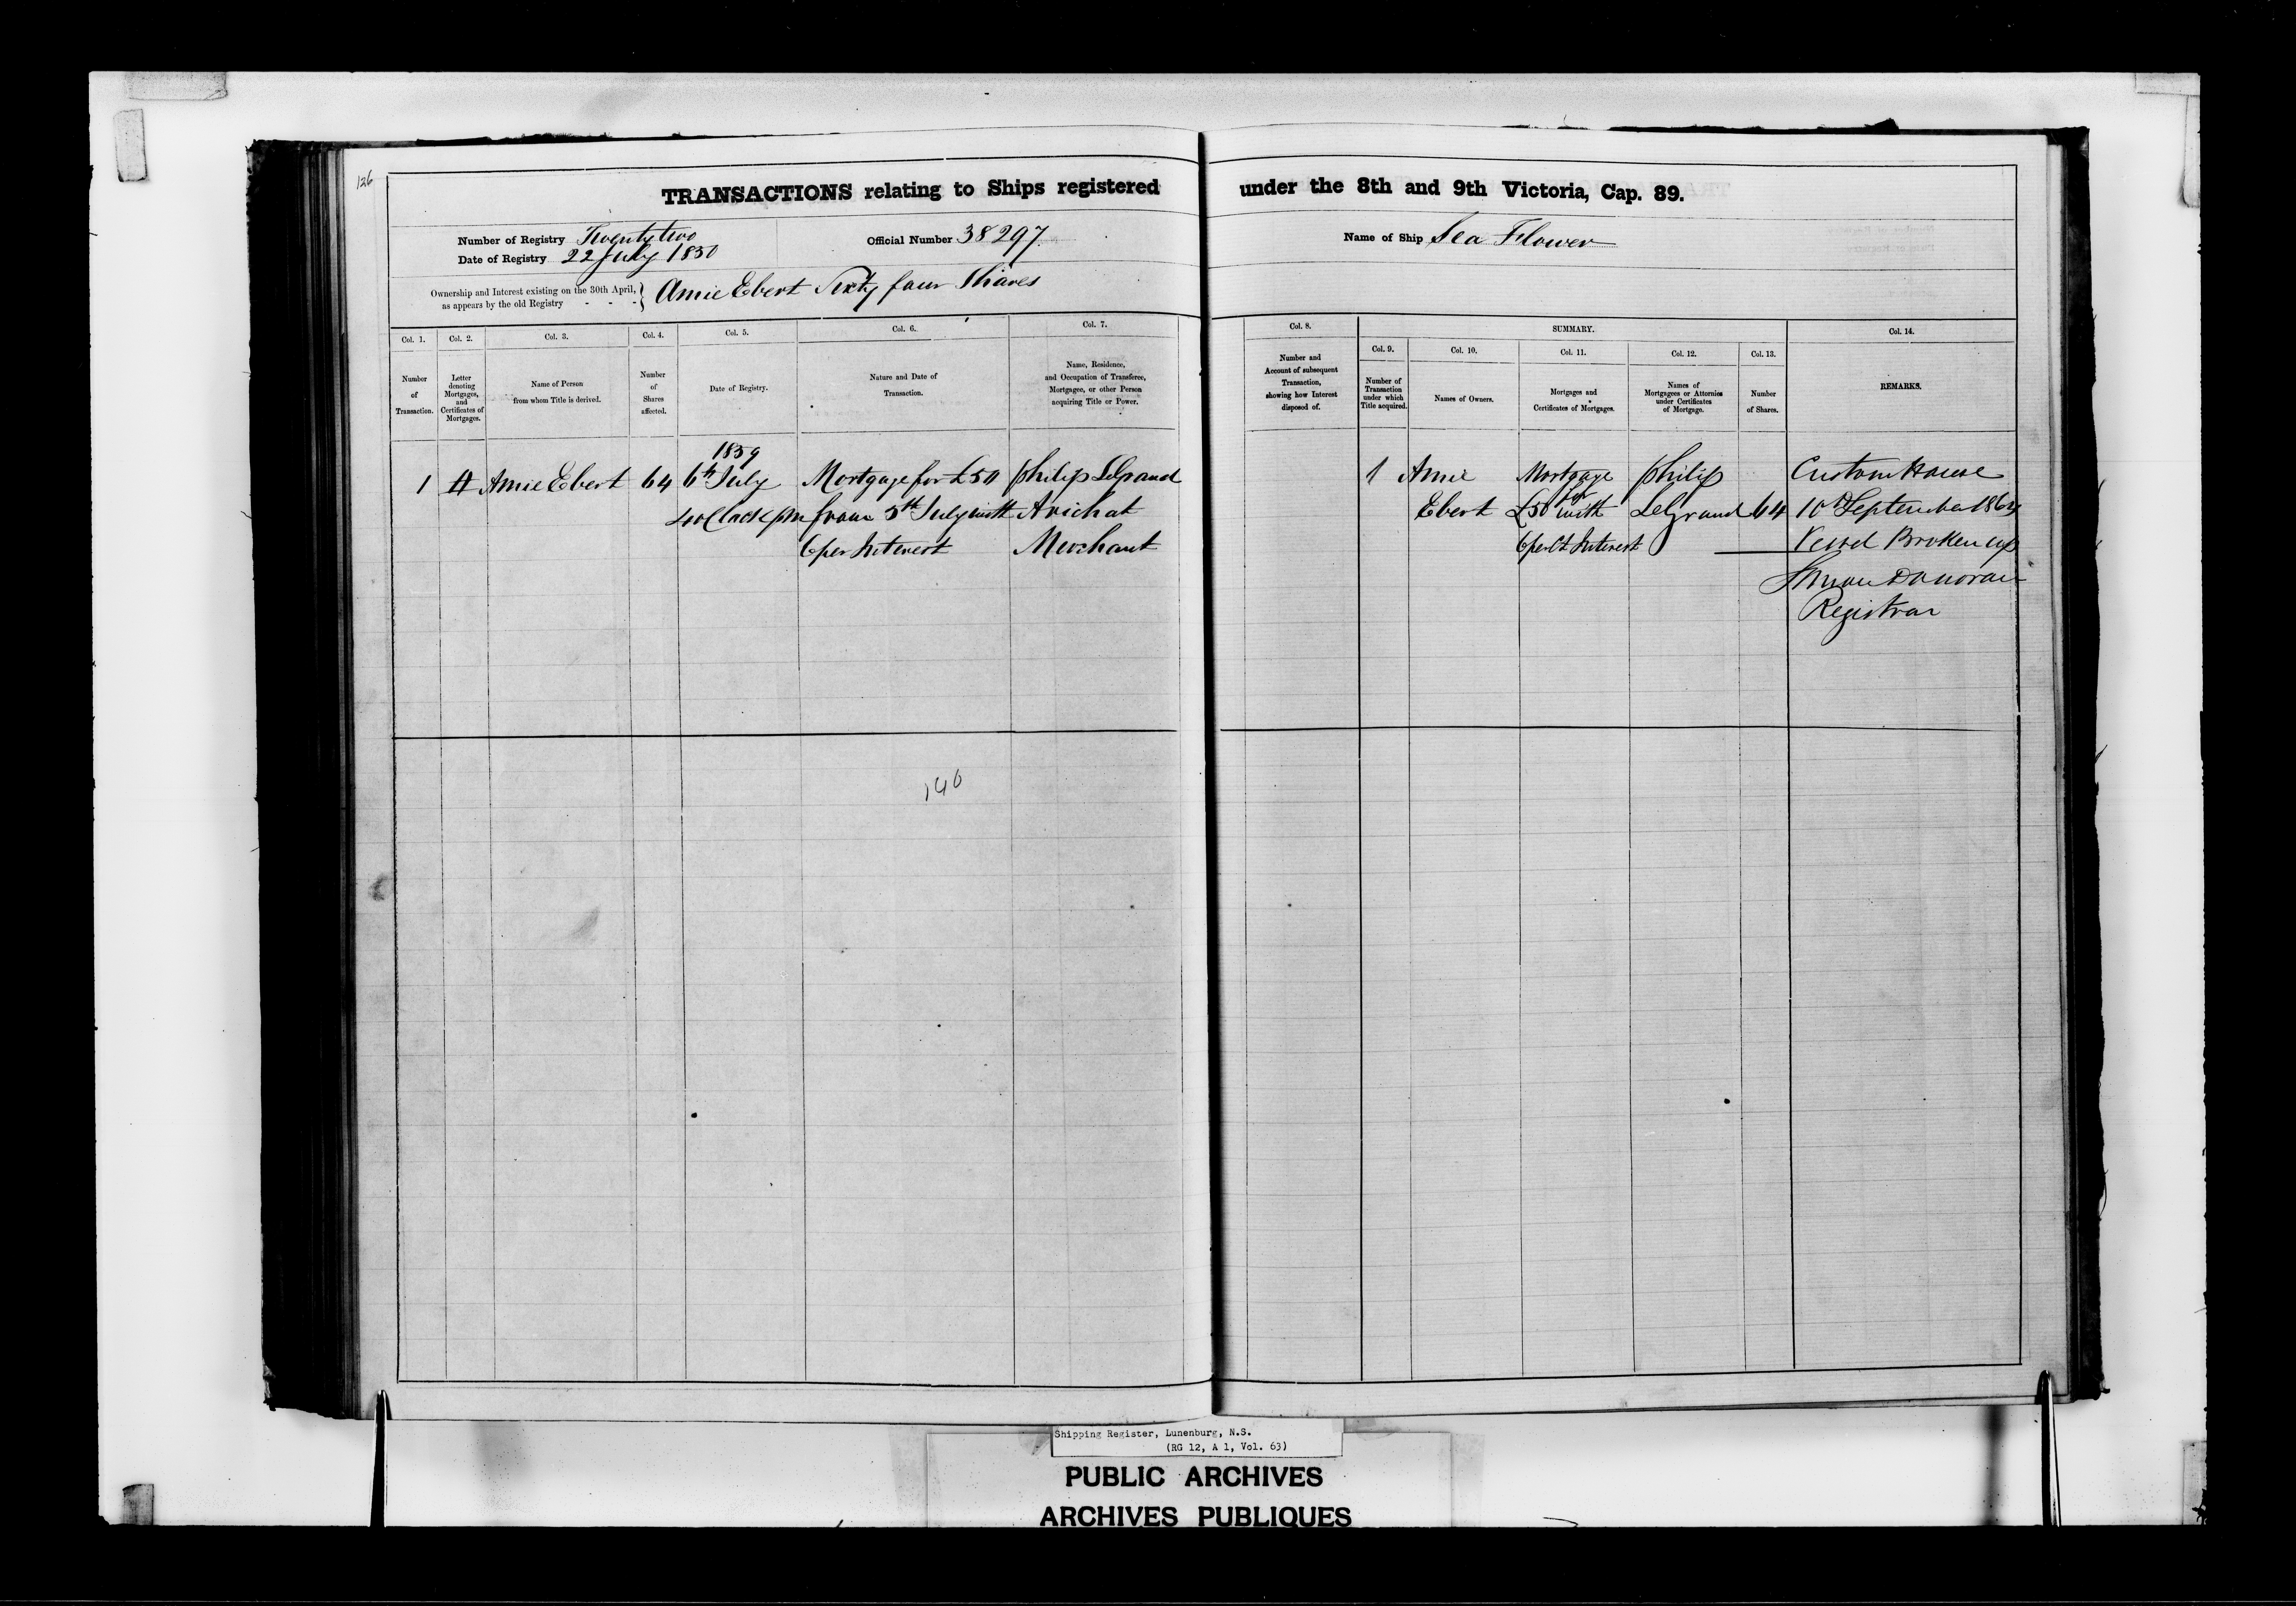 126
TRANSACTIONS relating to Ships registered under the 8th and 9th Victoria, Cap. 89.
Number of Registry Twenty two
Official Number 38297
Name of Ship Sea Flower
Date of Registry 22 July 1850
Ownership and Interest existing on the 30th April,
as appears by the old Registry - - - } Amie Ebert Sixty four Shares
Col. 1. Col. 2. Col. 3. Col. 4. Col. 5. Col. 6. Col. 7. Col. 8. SUMMARY. Col. 14.
Col. 9. Col. 10. Col. 11. Col. 12. Col. 13.
Number
of
Transaction.
Letter
denoting
Mortgages,
and
Certificates of
Mortgages.
Name of Person
from whom Title is derived.
Number
of
Shares
affected.
Date of Registry.
Nature and Date of
Transaction.
Name, Residence,
and Occupation of Transferee,
Mortgagee, or other Person
acquiring Title or Power.
Number and
Account of subsequent
Transaction,
showing how Interest
disposed of.
Number of
Transaction
under which
Title acquired.
Names of Owners.
Mortgages and
Certificates of Mortgages.
Names of
Mortgagees or Attornies
under Certificates
of Mortgage.
Number
of Shares.
REMARKS.
1
Amie Ebert
64
1859
6th July
4 oClock pm
Mortgage for £50
from 5th July with
6 per Interest
Philip LeGrand
Arichat
Merchant
1
Amie
Ebert
Mortgage
for
£50 with
6 per Ct Interest
Philip
LeGrand
64
Custom House
10th September
Vessel Broken up
Donovan
Registrar
140
Shipping Register, Lunenburg, N.S.
(RG 12, A 1, Vol. 63)
PUBLIC ARCHIVES
ARCHIVES PUBLIQUES